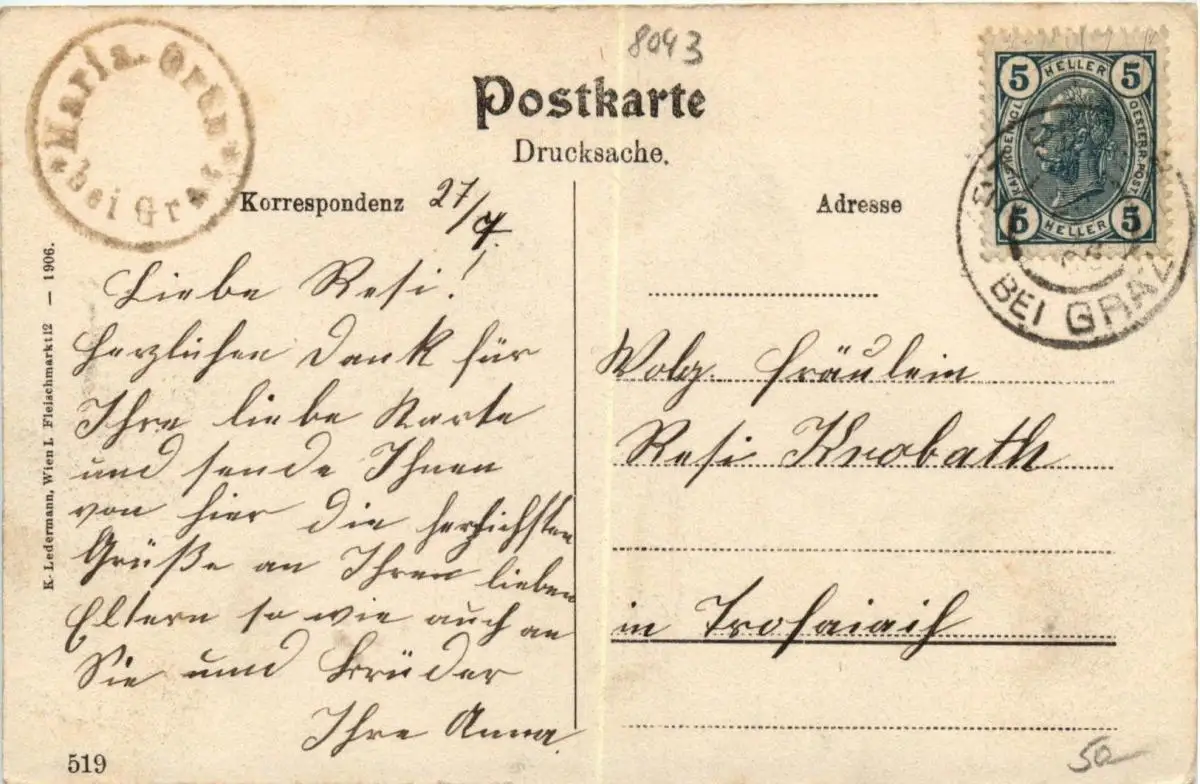 *Maria-Grün*
bei Graz
8043
Postkarte
Drucksache.
Korrespondenz 27/7.
Adresse
5 HELLER 5
KAIS. KOENIGL. OESTERR. POST
5 HELLER 5
BEI GRAZ
Liebe Resi!
Herzlichen Dank für
Ihre liebe Karte
und sende Ihnen
von hier die herzlichsten
Grüße an Ihren lieben
Eltern so wie auch an
Sie und Brüder
Ihre Anna.
Wolg. Fräulein
Resi Krobath
in Trofaiach
K. Ledermann, Wien I. Fleischmarkt 12 — 1906.
519
50